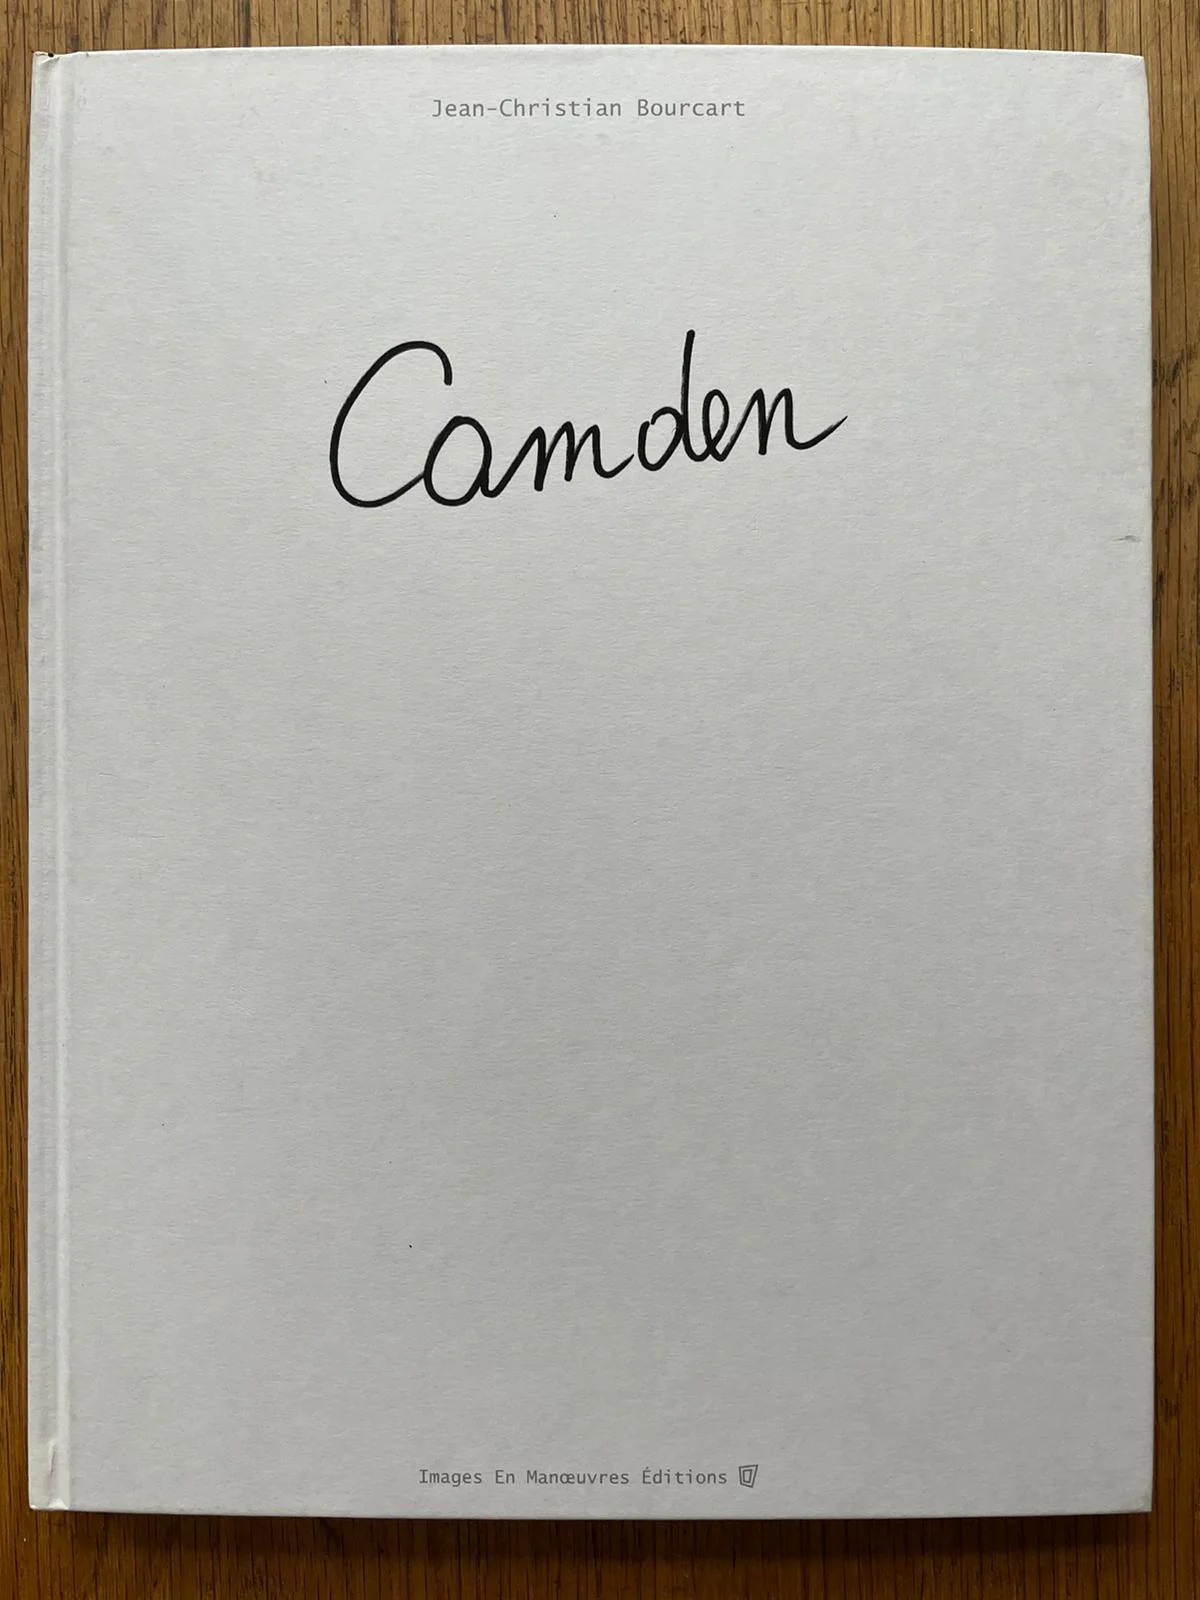 Jean-Christian Bourcart
Camden
Images En Manœuvres Éditions